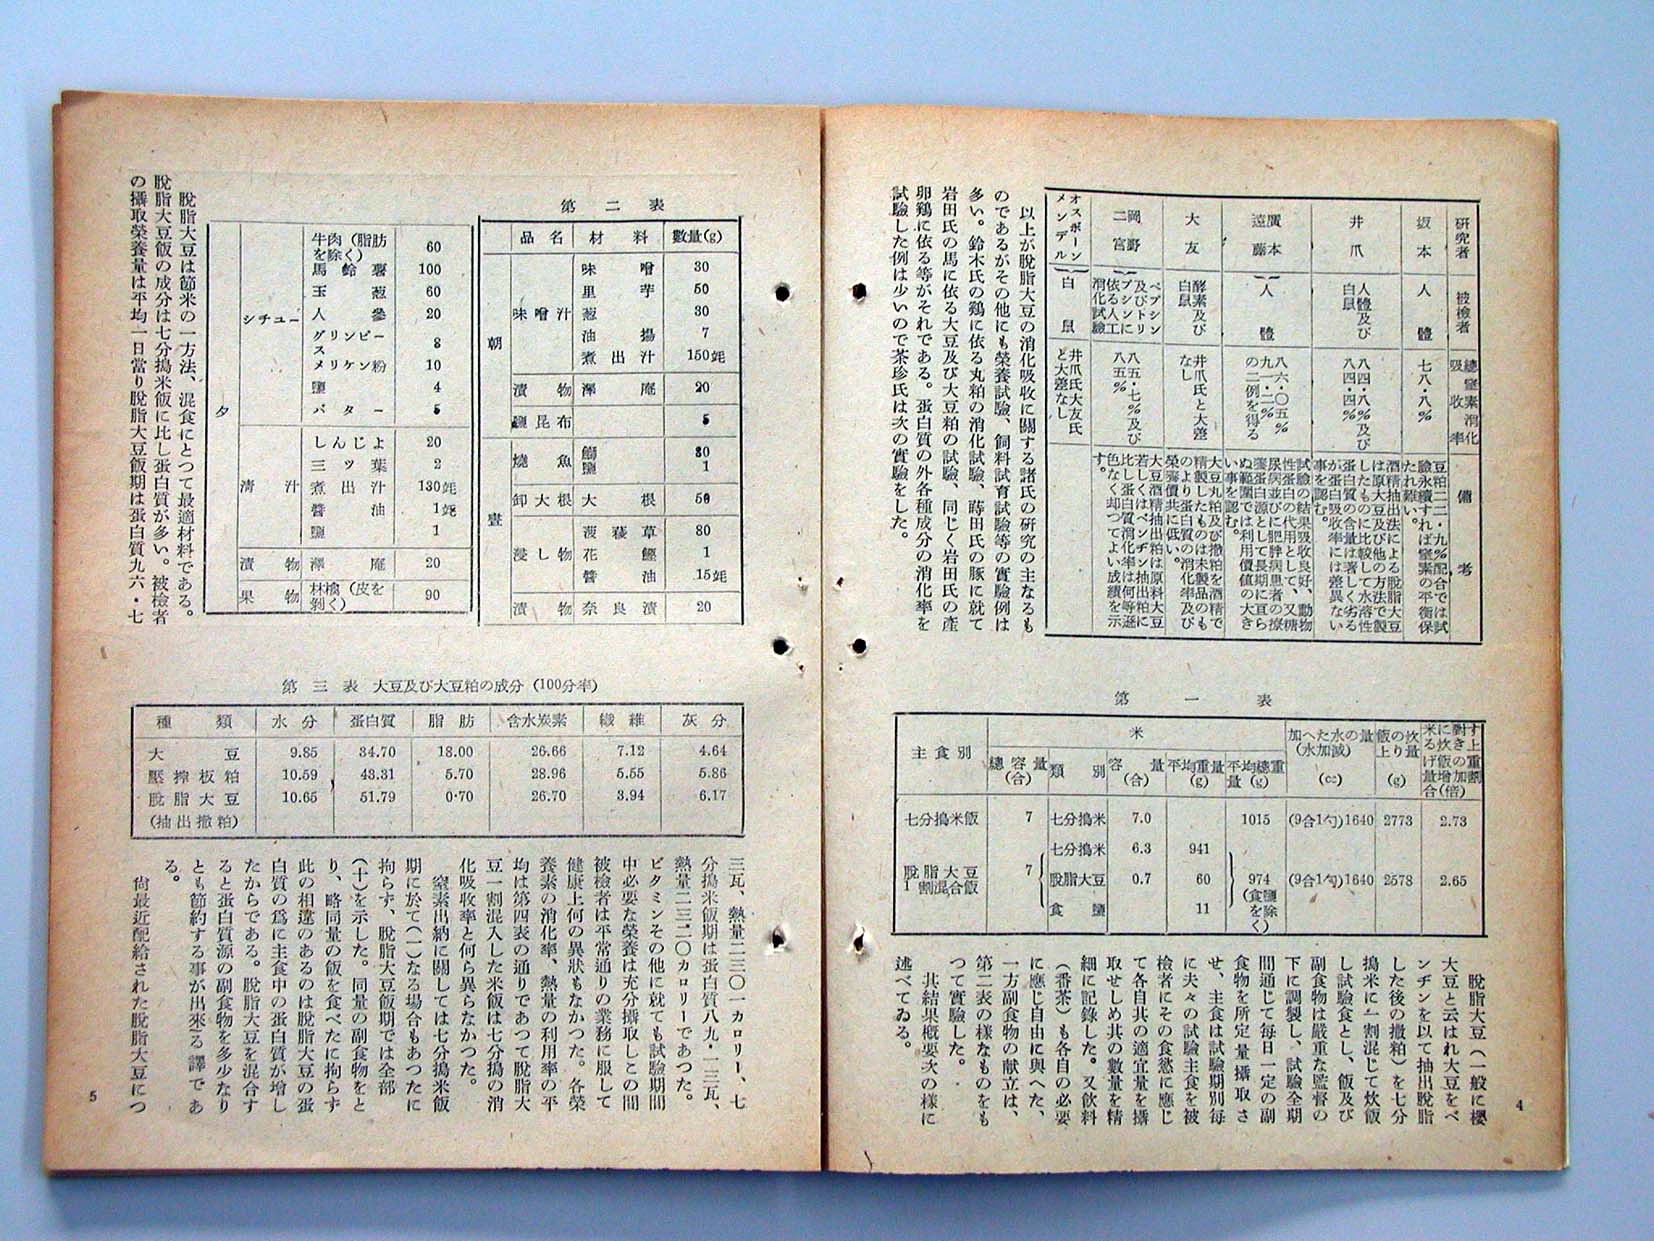 研究者 被檢者 總窒素消化吸收率 備考
坂本 人體 七八・八% 豆粕二二・九%配合では試驗永續すれば窒素の平衡保たれ難い。
井爪 人體及び白鼠 八四・八%及び八四・四% 酒精抽出法による脫脂大豆は原大豆及び他の方法で製したものに比較して水溶性蛋白質の含量は著しく劣るが蛋白吸收率には差異ない事を認む。
廣本 遠藤 人體 八六・〇五% 九一・二% の二例を得る 試驗の結果吸收良好、動物性蛋白の代用として、又糖尿病並びに肥胖病患者の療養蛋白源として長期に亘らぬ範圍では利用價値の大きい事を認む。
大友 酵素及び白鼠 井爪氏と大差なし 大豆丸粕及び撒粕を酒精で精製したものは未製品のものより蛋白質の消化率及び榮養價共に低い。
岡野 二宮 ペプシン及びトリプシンに依る人工消化試驗 八五・七%及び八五% 大豆酒精抽出粕は原料大豆若しくはベンヂン抽出粕に比し蛋白質消化率は何等遜色なく却つてよい成績を示す。
オスボーン メンデル 白鼠 井爪氏大友氏と大差なし
以上が脫脂大豆の消化吸收に關する諸氏の硏究の主なるも
のであるがその他にも榮養試驗、飼料試育試驗等の實驗例は
多い。鈴木氏の鷄に依る丸粕の消化試驗、蒔田氏の豚に就て
岩田氏の馬に依る大豆及び大豆粕の試驗、同じく岩田氏の產
卵鷄に依る等がそれである。蛋白質の外各種成分の消化率を
試驗した例は少いので茶珍氏は次の實驗をした。
第一表
主食別 米 加へた水の量(水加減)(cc) 飯の炊上り量(g) 米に對する炊き上げ飯の重量增加割合(倍)
總容量(合) 類別 容量(合) 平均重量(g) 平均總重量(g)
七分搗米飯 7 七分搗米 7.0 1015 (9合1勺)1640 2773 2.73
脫脂大豆1割混合飯 7 七分搗米 6.3 941
脫脂大豆 0.7 60 974(食鹽除く) (9合1勺)1640 2578 2.65
食鹽 11
脫脂大豆(一般に櫻
大豆と云はれ大豆をベ
ンヂンを以て抽出脫脂
した後の撒粕)を七分
搗米に一割混じて炊飯
し試驗食とし、飯及び
副食物は嚴重な監督の
下に調製し、試驗全期
間通じて每日一定の副
食物を所定量攝取さ
せ、主食は試驗期別每
に夫々の試驗主食を被
檢者にその食慾に應じ
て各自其の適宜量を攝
取せしめ其の數量を精
細に記錄した。又飮料
(番茶)も各自の必要
に應じ自由に與へた、
一方副食物の献立は、
第二表の樣なものをも
つて實驗した。
其結果槪要次の樣に
述べてゐる。
4
第二表
品名 材料 數量(g)
朝
味噌汁 味噌 30
里芋 50
葱 30
油揚 7
煮出汁 150竓
漬物 澤庵 20
鹽昆布 5
晝
燒魚 鰤 80
鹽 1
卸大根 大根 50
浸し物 菠薐草 80
花鰹 1
醬油 15竓
漬物 奈良漬 20
夕
シチュー 牛肉(脂肪を除く) 60
馬鈴薯 100
玉葱 60
人參 20
グリンピース 8
メリケン粉 10
鹽 4
バター 5
淸汁 しんじよ 20
三ッ葉 2
煮出汁 130竓
醬油 1竓
鹽 1
漬物 澤庵 20
果物 林檎(皮を剝く) 90
脫脂大豆は節米の一方法、混食にとつて最適材料である。
脫脂大豆飯の成分は七分搗米飯に比し蛋白質が多い。被檢者
の攝取榮養量は平均一日當り脫脂大豆飯期は蛋白質九六・七
第三表 大豆及び大豆粕の成分(100分率)
種類 水分 蛋白質 脂肪 含水炭素 纖維 灰分
大豆 9.85 34.70 18.00 26.66 7.12 4.64
壓搾板粕 10.59 43.31 5.70 28.96 5.55 5.86
脫脂大豆 10.65 51.79 0.70 26.70 3.94 6.17
(抽出撒粕)
三瓦、熱量二三三〇一カロリー、七
分搗米飯期は蛋白質八九・一三瓦、
熱量二三三二〇カロリーであつた。
ビタミンその他に就ても試驗期間
中必要な榮養は充分攝取しこの間
被檢者は平常通りの業務に服して
健康上何の異狀もなかつた。各榮
養素の消化率、熱量の利用率の平
均は第四表の通りであつて脫脂大
豆一割混入した米飯は七分搗の消
化吸收率と何ら異らなかつた。
窒素出納に關しては七分搗米飯
期に於て(一)なる場合もあつたに
拘らず、脫脂大豆飯期では全部
(十)を示した。同量の副食物をと
り、略同量の飯を食べたに拘らず
此の相違のあるのは脫脂大豆の蛋
白質の爲に主食中の蛋白質が增し
たからである。脫脂大豆を混合す
ると蛋白質源の副食物を多少なり
とも節約する事が出來る譯であ
る。
尙最近配給された脫脂大豆につ
5